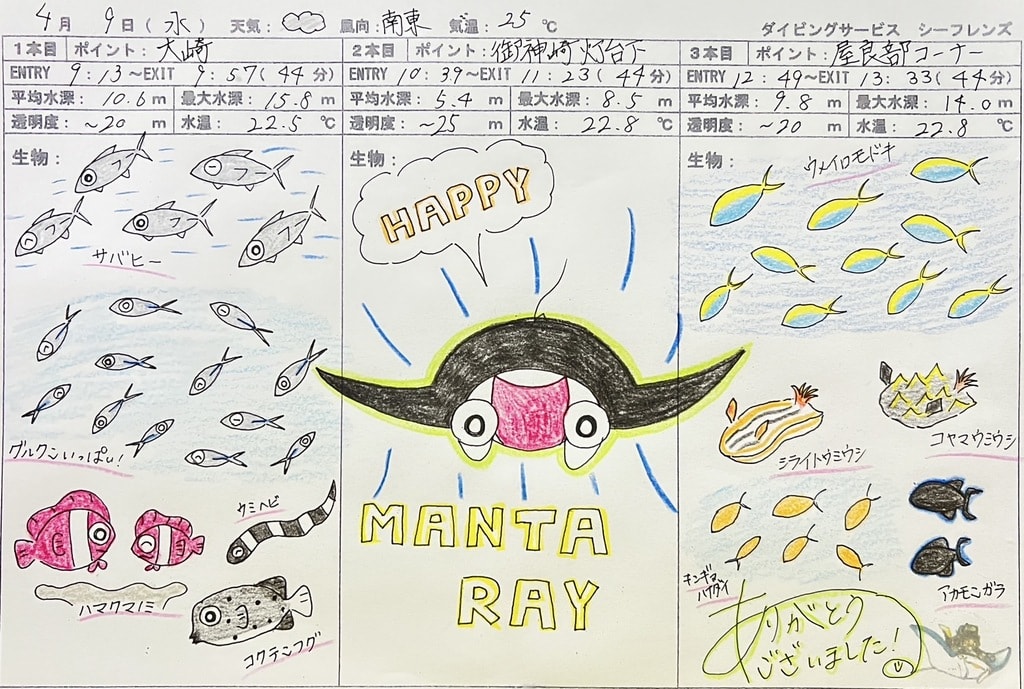 4月 9日(水) 天気: 風向:南東 気温:25℃
ダイビングサービス シーフレンズ
1本目 ポイント:大崎
ENTRY 9:13〜EXIT 9:57(44分)
平均水深:10.6m 最大水深:15.8m
透明度:~20m 水温:22.5℃
生物:
サバヒー
グルクンいっぱい!
ウミヘビ
ハマクマノミ
コクテンフグ
2本目 ポイント:御神崎灯台下
ENTRY 10:39〜EXIT 11:23(44分)
平均水深:5.4m 最大水深:8.5m
透明度:~25m 水温:22.8℃
生物:
HAPPY
MANTA
RAY
3本目 ポイント:屋良部コーナー
ENTRY 12:49〜EXIT 13:33(44分)
平均水深:9.8m 最大水深:14.0m
透明度:~20m 水温:22.8℃
生物:
ウメイロモドキ
シライトウミウシ
コヤマウミウシ
キンギョ
ハナダイ
アカモンガラ
ありがとう
ございました!